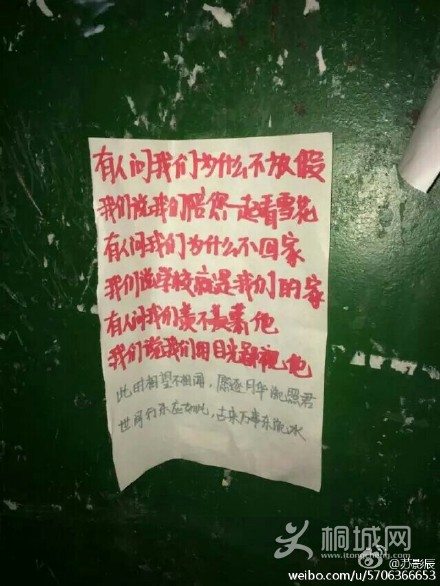 有人问我们为什么不放假
我们说我们陪您一起看雪花
有人问我们为什么不回家
我们说学校就是我们的家
有人问我们羡不羡慕他
我们说我们用目光鄙视他
此时相望不相闻，愿逐月华流照君
世间行乐亦如此，古来万事东流水
桐城网
www.itongcheng.com
@苏影辰
weibo.com/u/5706366653